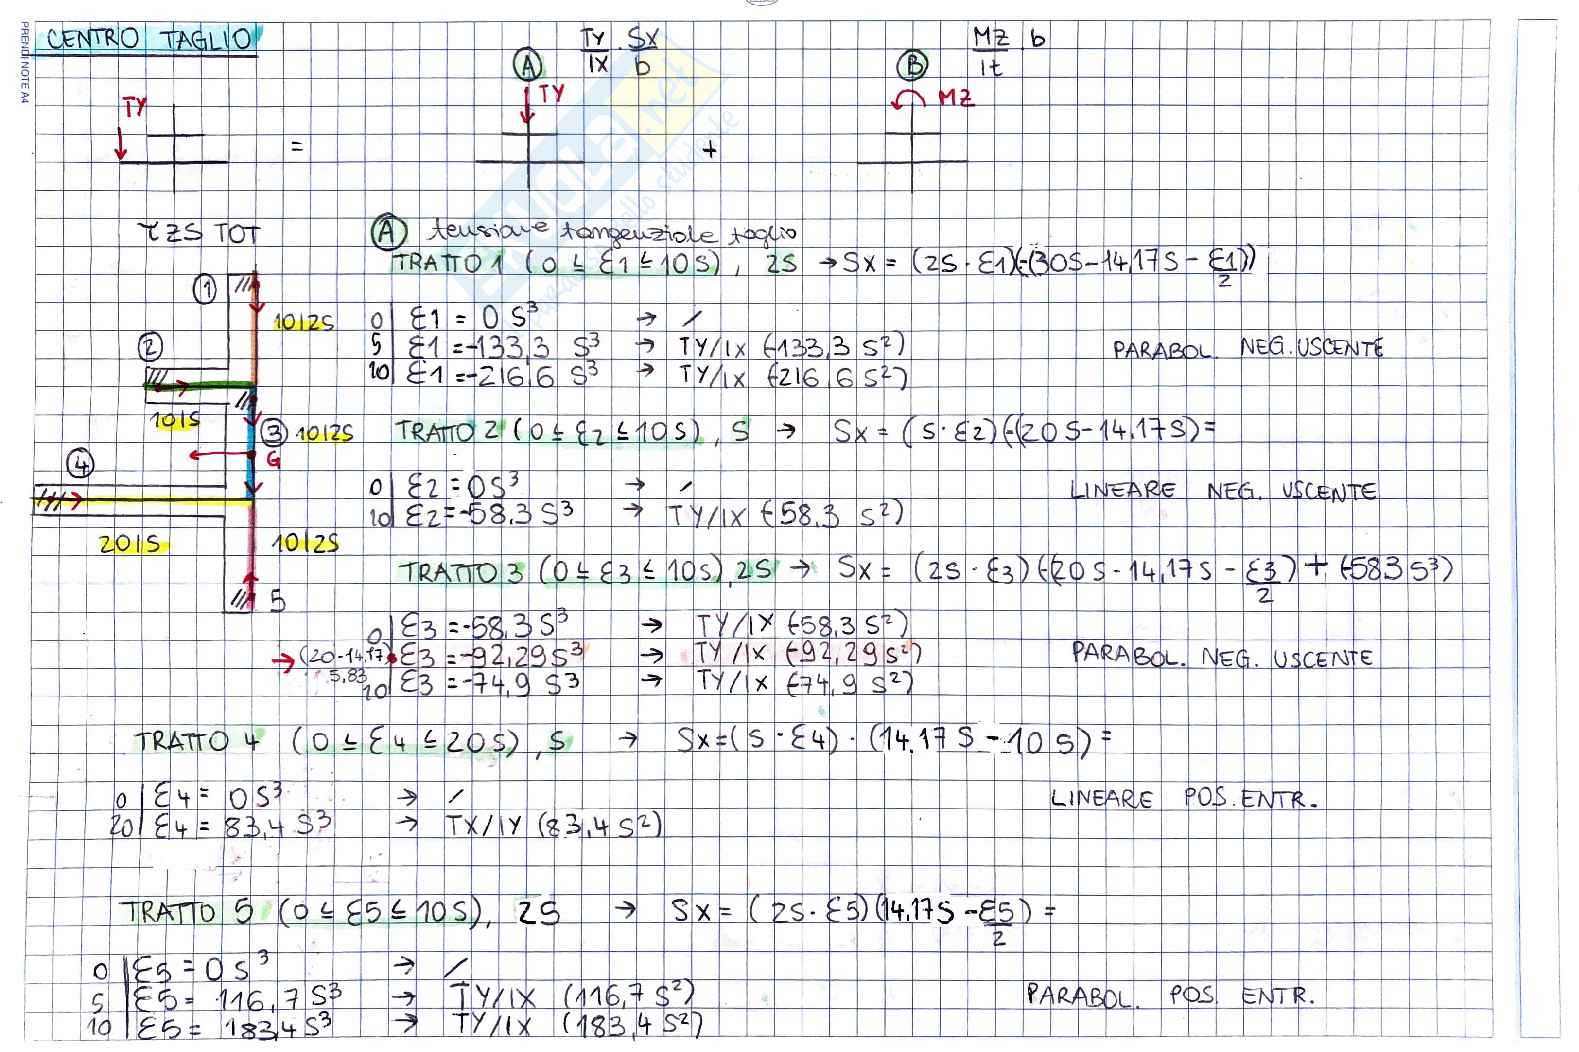 PRENDI NOTE A4
CENTRO TAGLIO
TY/IX · SX/b
MZ/It b
A
B
TY
TY
MZ
=
+
τZS TOT
A tensione tangenziale taglio
TRATTO 1 (0 ≤ ε1 ≤ 10S), 2S → SX = (2S · ε1)(-(30S-14,17S - ε1/2))
1
10|2S
0 | ε1 = 0 S³ → /
5 | ε1 = -133,3 S³ → TY/IX (-133,3 S²)
PARABOL. NEG. USCENTE
2
10 | ε1 = -216,6 S³ → TY/IX (-216,6 S²)
10|S
3 10|2S
TRATTO 2 (0 ≤ ε2 ≤ 10S), S → SX = (S · ε2)(-(20S-14,17S) =
G
4
0 | ε2 = 0S³ → /
LINEARE NEG. USCENTE
10 | ε2 = -58,3 S³ → TY/IX (-58,3 S²)
20|S
10|2S
TRATTO 3 (0 ≤ ε3 ≤ 10S), 2S → SX = (2S · ε3)(-(20S-14,17S - ε3/2) + (-583 S³)
5
0 | ε3 = -58,3 S³ → TY/IX (-58,3 S²)
→ (20-14,17) ε3 = -92,29 S³ → TY/IX (-92,29 S²)
PARABOL. NEG. USCENTE
5,83
10 | ε3 = -74,9 S³ → TY/IX (-74,9 S²)
TRATTO 4 (0 ≤ ε4 ≤ 20S), S → SX = (S · ε4) · (14,17S - 10S) =
0 | ε4 = 0S³ → /
LINEARE POS. ENTR.
20 | ε4 = 83,4 S³ → TX/IY (83,4 S²)
TRATTO 5 (0 ≤ ε5 ≤ 10S), 2S → SX = (2S · ε5)(14,17S - ε5/2) =
0 | ε5 = 0 S³ → /
5 | ε5 = 116,7 S³ → TY/IX (116,7 S²)
PARABOL. POS. ENTR.
10 | ε5 = 183,4 S³ → TY/IX (183,4 S²)